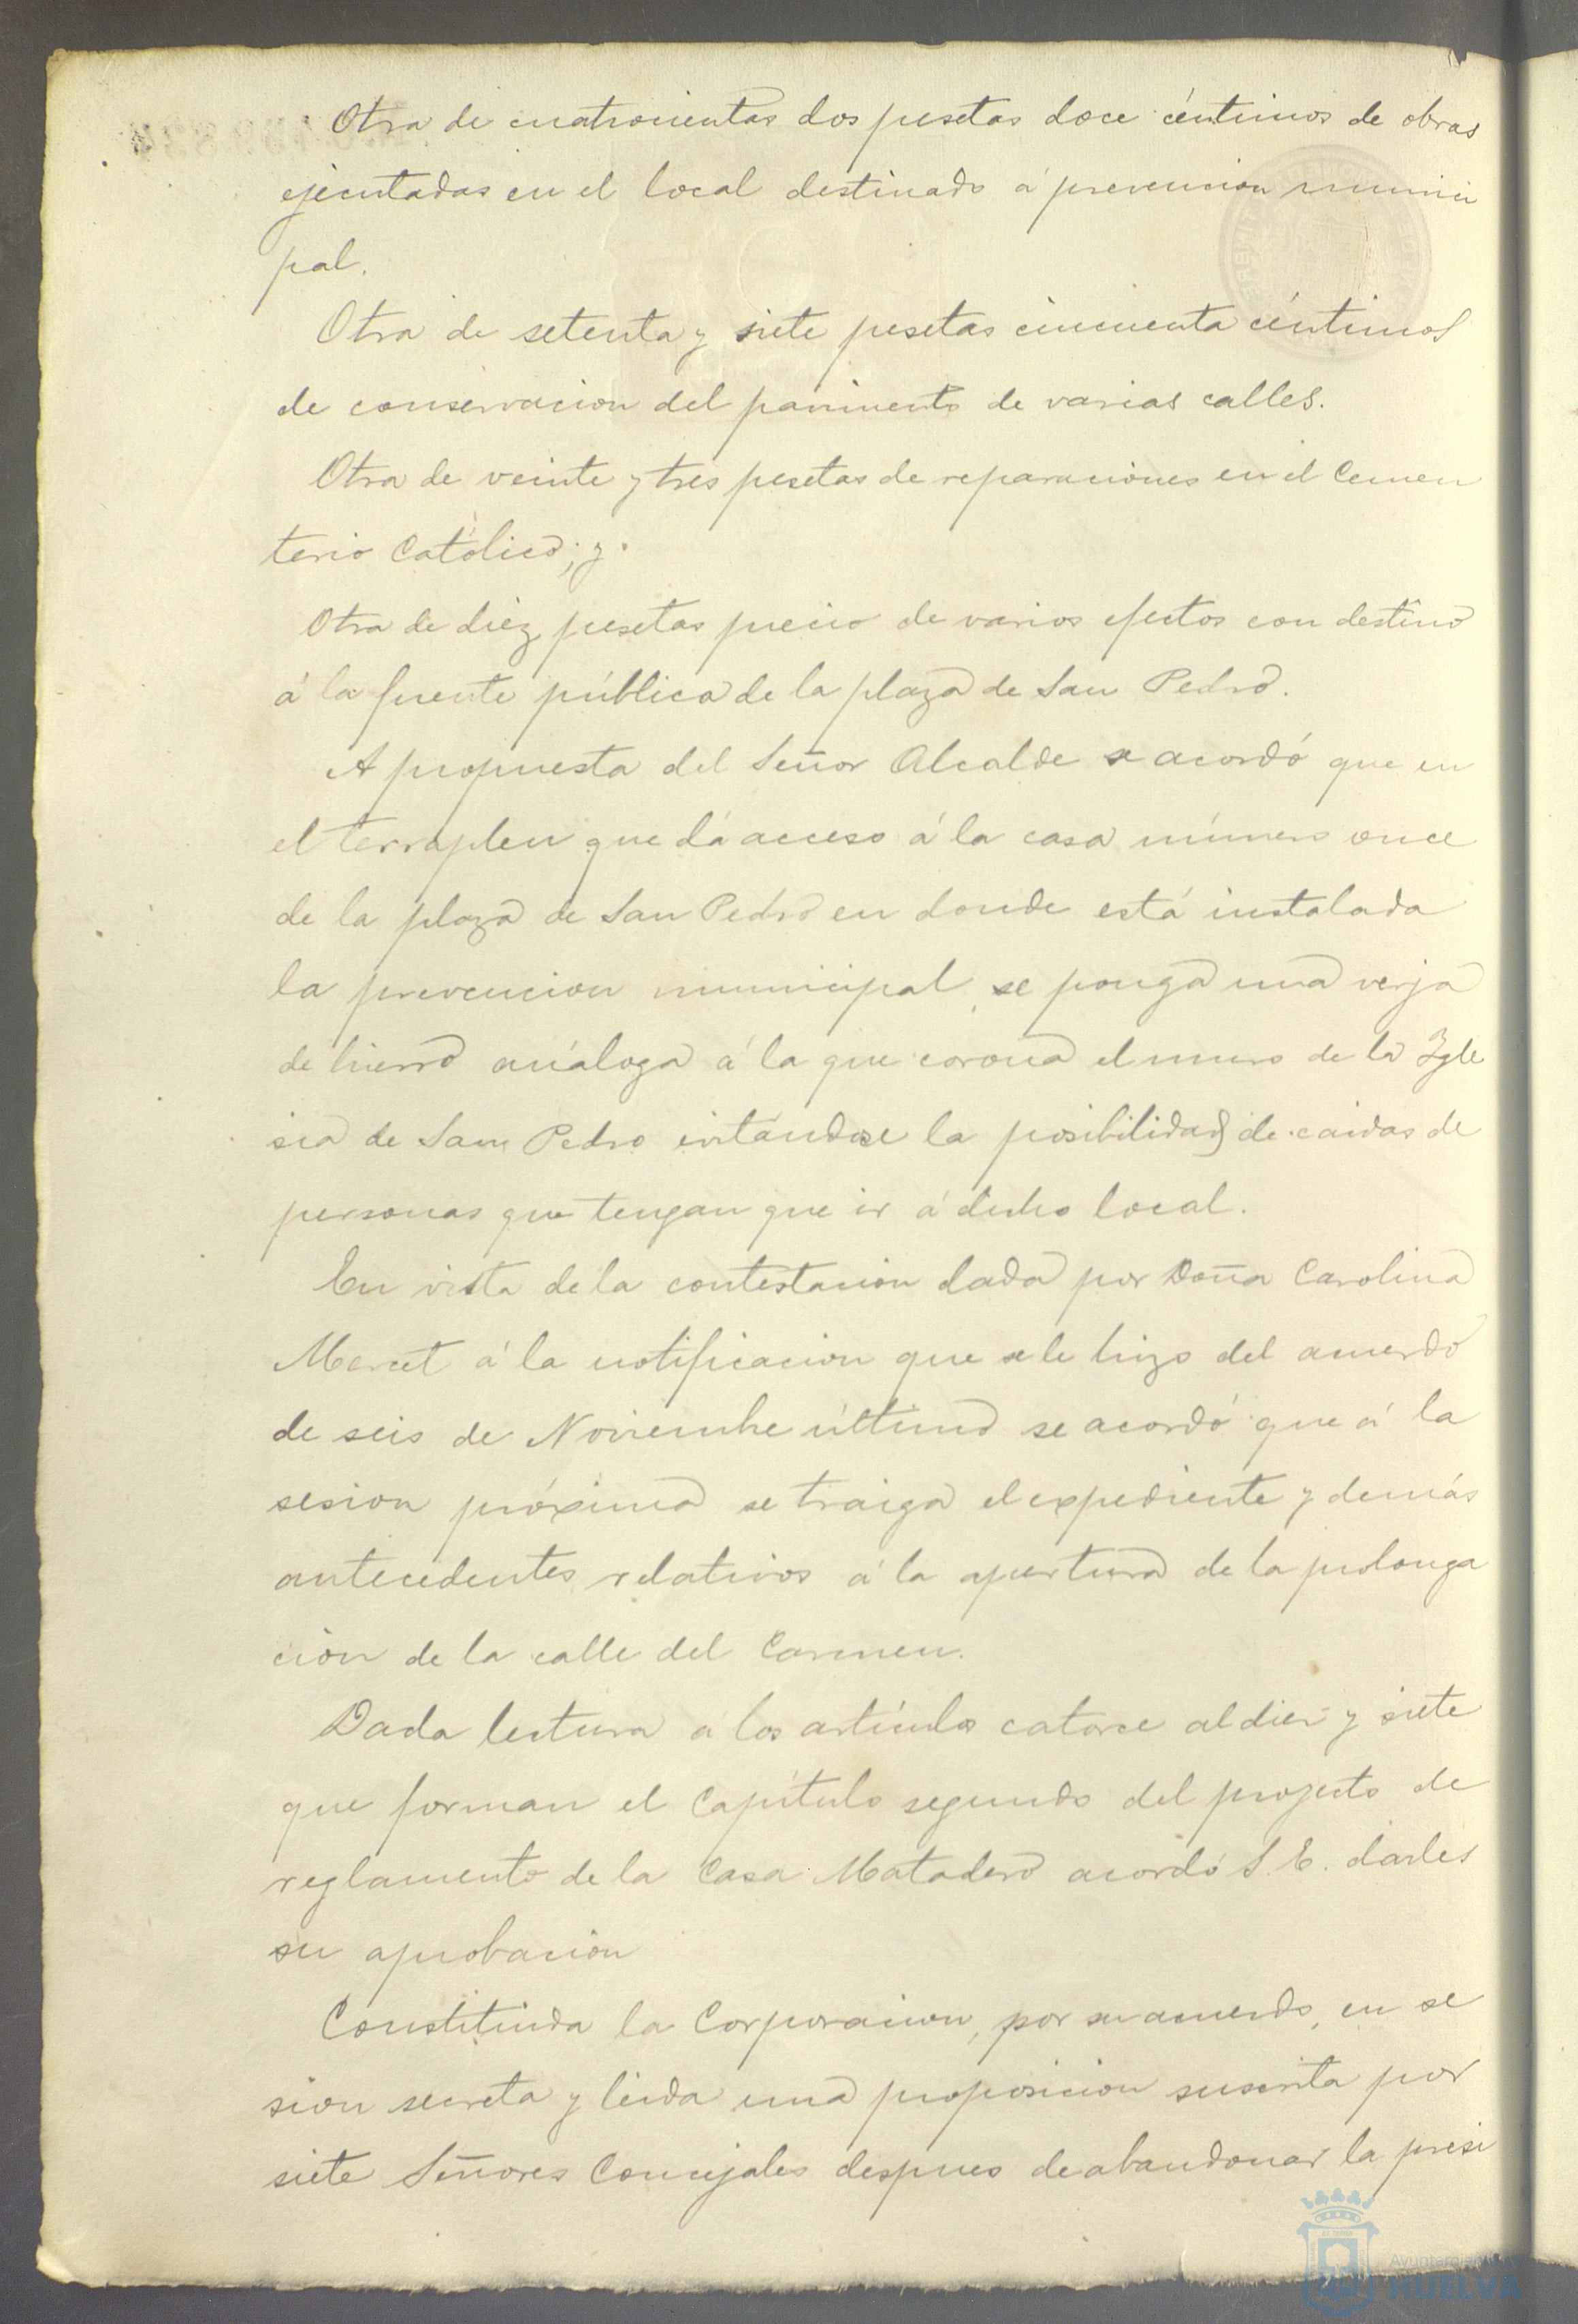 Otra de cuatrocientas dos pesetas doce céntimos de obras
ejecutadas en el local destinado á prevencion munici
pal.
Otra de setenta y siete pesetas cincuenta céntimos
de conservacion del pavimento de varias calles.
Otra de veinte y tres pesetas de reparaciones en el Cemen
terio Católico; y
Otra de diez pesetas precio de varios efectos con destino
á la fuente pública de la plaza de San Pedro.
A propuesta del Señor Alcalde se acordó que en
el terraplen que dá acceso á la casa número once
de la plaza de San Pedro en donde está instalada
la prevencion municipal, se ponga una verja
de hierro análoga á la que corona el muro de la Igle
sia de San Pedro evitándose la posibilidad de caidas de
personas que tengan que ir á dicho local.
En vista de la contestacion dada por Doña Carolina
Mercet á la notificacion que se le hizo del acuerdo
de seis de Noviembre último se acordó que á la
sesion próxima se traiga el expediente y demás
antecedentes relativos á la apertura de la prolonga
ción de la calle del Carmen.
Dada lectura a los artículos catorce al diez y siete
que forman el Capítulo segundo del proyecto de
reglamento de la Casa Matadero acordó S. E. darles
su aprobacion
Constituida la Corporacion, por su acuerdo, en se
sion secreta y leida una proposicion suscrita por
siete Señores Concejales despues de abandonar la presi
Ayuntamiento de
HUELVA